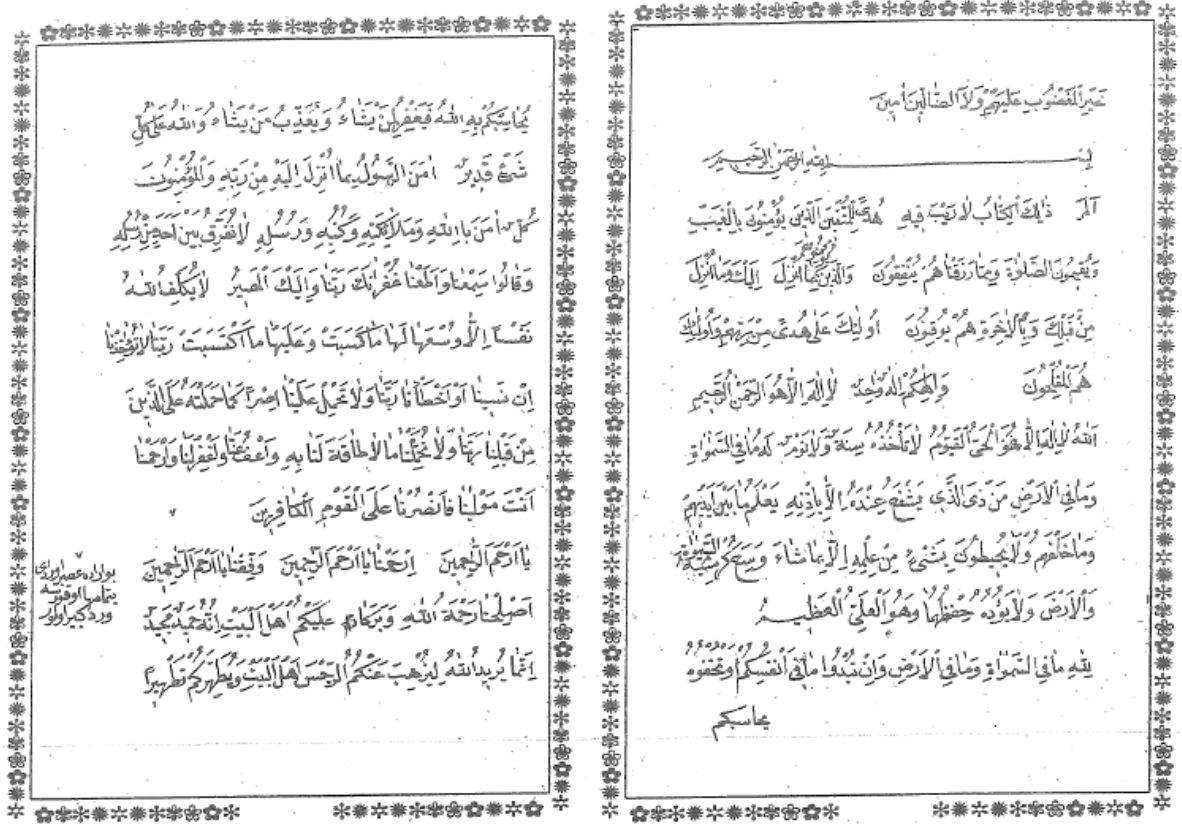 غَيْرِ الْمَغْضُوبِ عَلَيْهِمْ وَلَا الضَّالِّينَ اٰمِينَ
بِسْمِ اللهِ الرَّحْمٰنِ الرَّحِيمِ
الٓمٓ ذٰلِكَ الْكِتَابُ لَا رَيْبَ فِيهِ هُدًى لِلْمُتَّقِينَ الَّذِينَ يُؤْمِنُونَ بِالْغَيْبِ
وَيُقِيمُونَ الصَّلٰوةَ وَمِمَّا رَزَقْنَاهُمْ يُنْفِقُونَ وَالَّذِينَ يُؤْمِنُونَ بِمَا اُنْزِلَ اِلَيْكَ وَمَا اُنْزِلَ
مِنْ قَبْلِكَ وَبِالْاٰخِرَةِ هُمْ يُوقِنُونَ اُولٰئِكَ عَلٰى هُدًى مِنْ رَبِّهِمْ وَاُولٰئِكَ
هُمُ الْمُفْلِحُونَ وَاِلٰهُكُمْ اِلٰهٌ وَاحِدٌ لَا اِلٰهَ اِلَّا هُوَ الرَّحْمٰنُ الرَّحِيمُ
اَللهُ لَا اِلٰهَ اِلَّا هُوَ الْحَىُّ الْقَيُّومُ لَا تَأْخُذُهُ سِنَةٌ وَلَا نَوْمٌ لَهُ مَا فِى السَّمٰوَاةِ
وَمَا فِى الْاَرْضِ مَنْ ذَى الَّذِى يَشْفَعُ عِنْدَهُ اِلَّا بِاِذْنِهِ يَعْلَمُ مَا بَيْنَ اَيْدِيهِمْ
وَمَا خَلْفَهُمْ وَلَا يُحِيطُونَ بِشَىْءٍ مِنْ عِلْمِهِ اِلَّا بِمَا شَاءَ وَسِعَ كُرْسِيُّهُ السَّمٰوَاةِ
وَالْاَرْضَ وَلَا يَؤُدُهُ حِفْظُهُمَا وَهُوَ الْعَلِىُّ الْعَظِيمُ
لِلهِ مَا فِى السَّمٰوَاةِ وَمَا فِى الْاَرْضِ وَاِنْ تُبْدُوا مَا فِى اَنْفُسِكُمْ اَوْ تُخْفُوهُ
يحاسبكم
يُحَاسِبْكُمْ بِهِ اللهُ فَيَغْفِرُ لِمَنْ يَشَاءُ وَيُعَذِّبُ مَنْ يَشَاءُ وَاللهُ عَلٰى كُلِّ
شَىْءٍ قَدِيرٌ اٰمَنَ الرَّسُولُ بِمَا اُنْزِلَ اِلَيْهِ مِنْ رَبِّهِ وَالْمُؤْمِنُونَ
كُلٌّ اٰمَنَ بِاللهِ وَمَلَائِكَتِهِ وَكُتُبِهِ وَرُسُلِهِ لَا نُفَرِّقُ بَيْنَ اَحَدٍ مِنْ رُسُلِهِ
وَقَالُوا سَمِعْنَا وَاَطَعْنَا غُفْرَانَكَ رَبَّنَا وَاِلَيْكَ الْمَصِيرُ لَا يُكَلِّفُ اللهُ
نَفْسًا اِلَّا وُسْعَهَا لَهَا مَا كَسَبَتْ وَعَلَيْهَا مَا اكْتَسَبَتْ رَبَّنَا لَا تُؤَاخِذْنَا
اِنْ نَسِينَا اَوْ اَخْطَأْنَا رَبَّنَا وَلَا تَحْمِلْ عَلَيْنَا اِصْرًا كَمَا حَمَلْتَهُ عَلَى الَّذِينَ
مِنْ قَبْلِنَا رَبَّنَا وَلَا تُحَمِّلْنَا مَا لَا طَاقَةَ لَنَا بِهِ وَاعْفُ عَنَّا وَاغْفِرْ لَنَا وَارْحَمْنَا
اَنْتَ مَوْلٰينَا فَانْصُرْنَا عَلَى الْقَوْمِ الْكَافِرِينَ
يَا اَرْحَمَ الرَّاحِمِينَ اِرْحَمْنَا يَا اَرْحَمَ الرَّاحِمِينَ وَفِّقْنَا يَا اَرْحَمَ الرَّاحِمِينَ
اَصْلِحْنَا رَحْمَةُ اللهِ وَبَرَكَاتُهُ عَلَيْكُمْ اَهْلَ الْبَيْتِ اِنَّهُ حَمِيدٌ مَجِيدٌ
اِنَّمَا يُرِيدُ اللهُ لِيُذْهِبَ عَنْكُمُ الرِّجْسَ اَهْلَ الْبَيْتِ وَيُطَهِّرَكُمْ تَطْهِيرًا
بتمامها اوقونسه
ورد كبير اولور